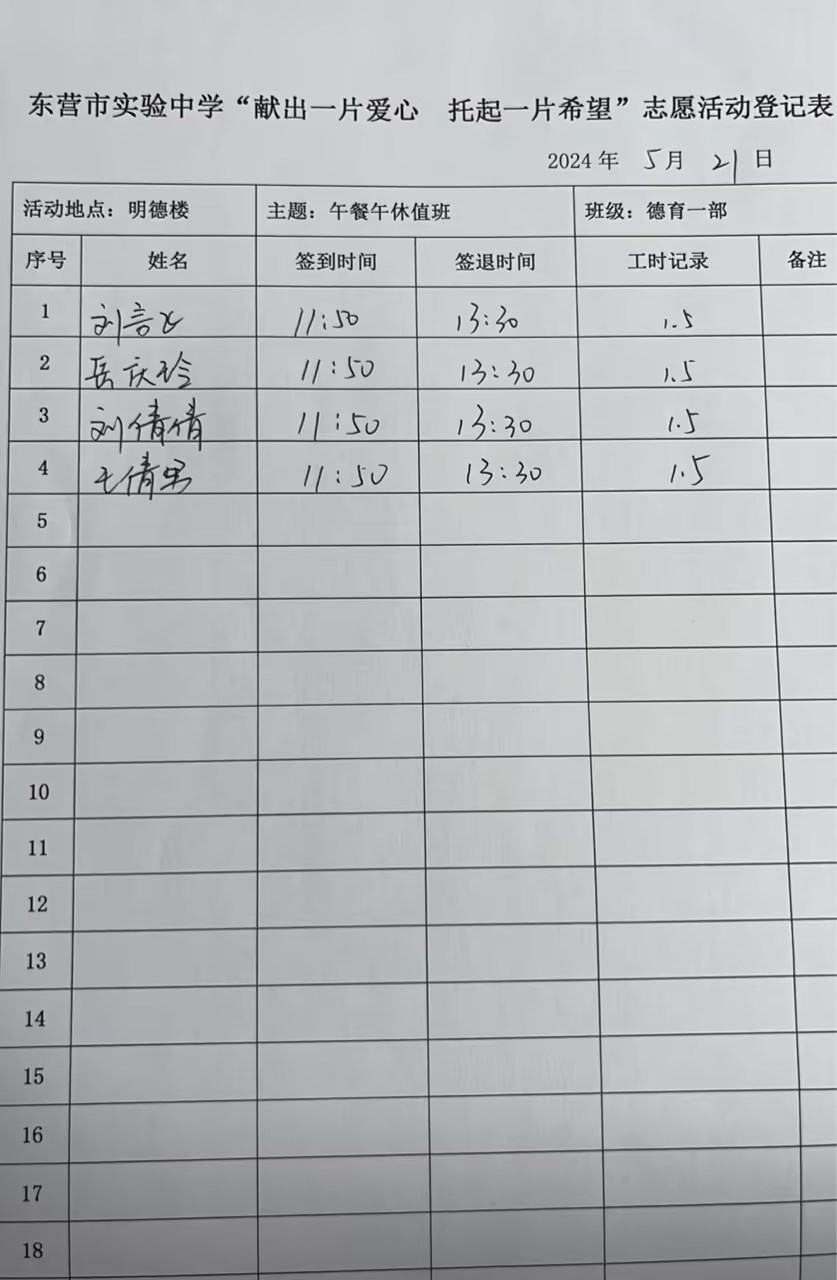 东营市实验中学“献出一片爱心 托起一片希望”志愿活动登记表
2024 年 5 月 21 日
活动地点：明德楼 主题：午餐午休值班 班级：德育一部
序号 姓名 签到时间 签退时间 工时记录 备注
1 刘言飞 11:50 13:30 1.5
2 岳庆玲 11:50 13:30 1.5
3 刘倩倩 11:50 13:30 1.5
4 王倩男 11:50 13:30 1.5
5
6
7
8
9
10
11
12
13
14
15
16
17
18